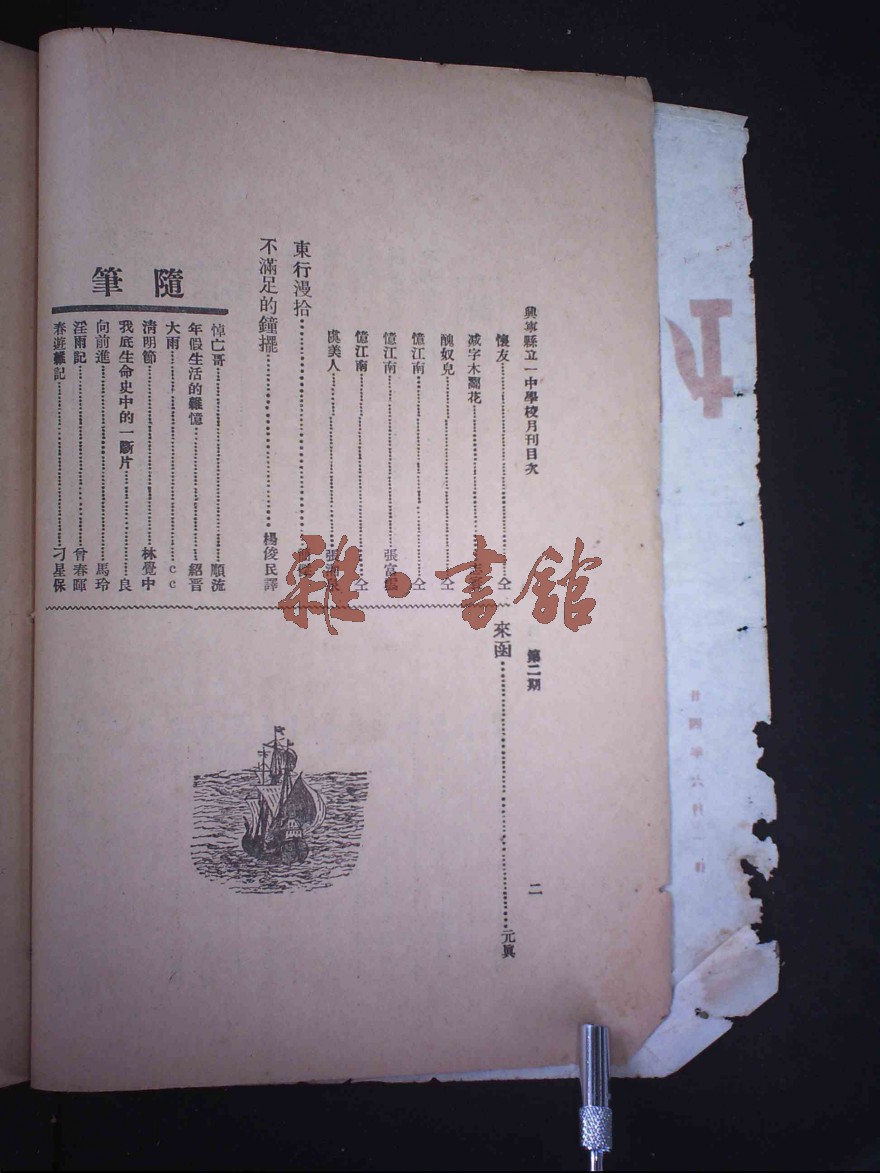 興寧縣立一中學校月刊目次
第二期
二
懷友……仝
減字木蘭花……
醜奴兒……仝
憶江南……仝
憶江南……張富
憶江南……仝
虞美人……張
東行漫拾……
不滿足的鐘擺……楊俊民譯
隨筆
悼亡哥……順流
年假生活的雜憶……紹晋
大雨……cc
清明節……林覺中
我底生命史中的一斷片……良
向前進……馬玲
淫雨記……曾春暉
春遊雜記……刁星保
來函……元真
雜·書館
廿四年六月一